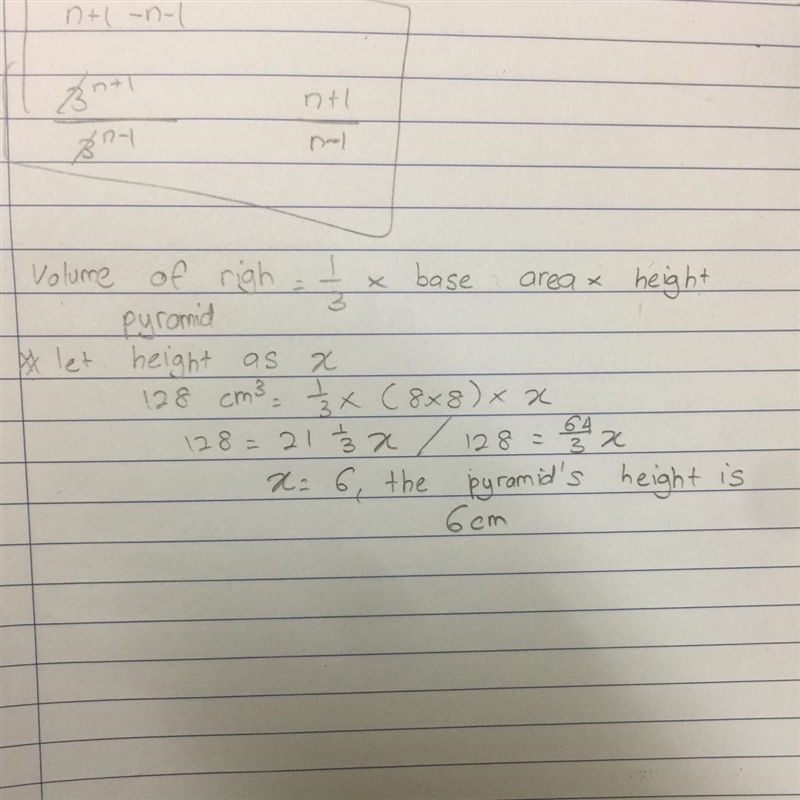 n+1 -n-1
3^(n+1) / 3^(n-1)    n+1 / n-1
Volume of righ = 1/3 × base area × height
pyramid
** let height as x
128 cm³ = 1/3 × (8×8) × x
128 = 21 1/3 x / 128 = 64/3 x
x = 6, the pyramid's height is
6cm